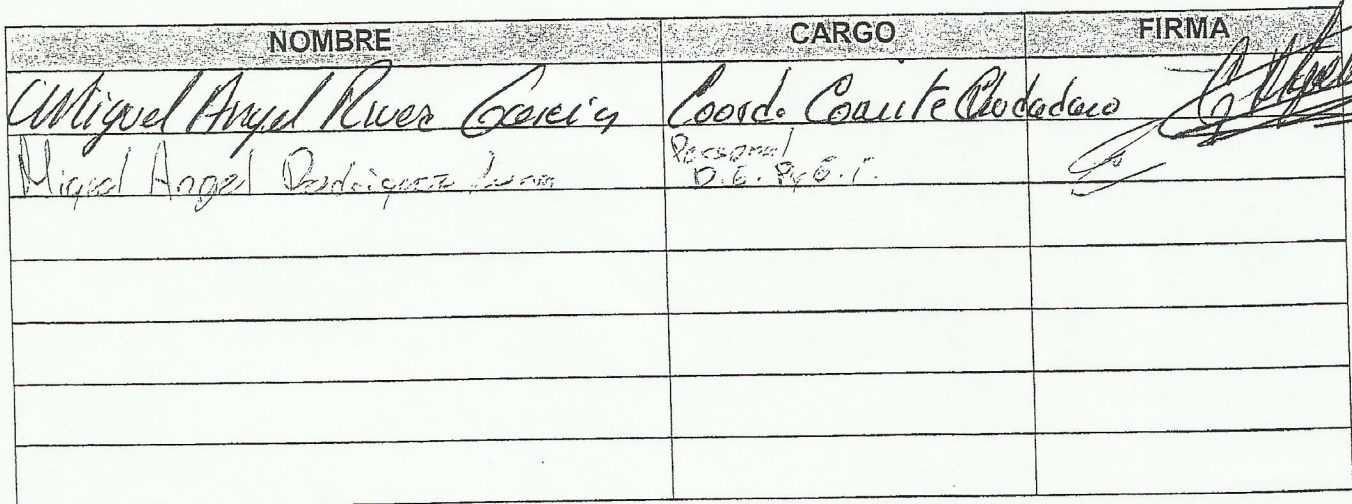 NOMBRE CARGO FIRMA
Miguel Angel River Garcia Coord. Comite Ciudadano
Miguel Angel Rodriguez Luna Personal
D.E.